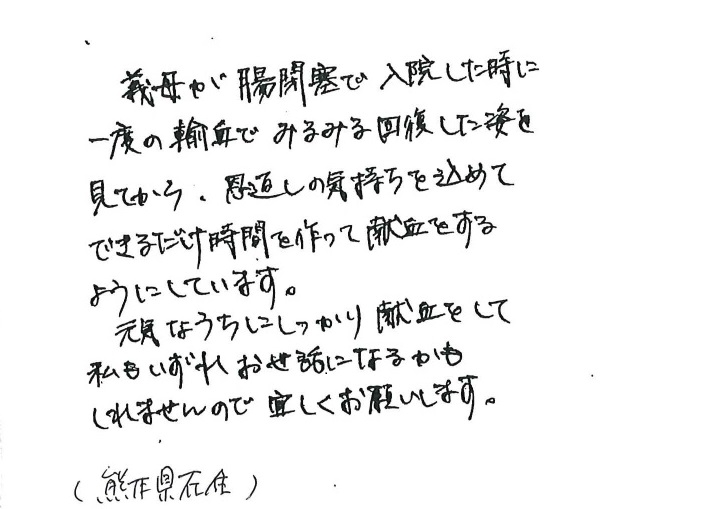 義母が腸閉塞で入院した時に
一度の輸血でみるみる回復した姿を
見てから、恩返しの気持ちを込めて
できるだけ時間を作って献血をする
ようにしています。
元気なうちにしっかり献血をして
私もいずれお世話になるかも
しれませんので宜しくお願いします。
(熊本県在住)